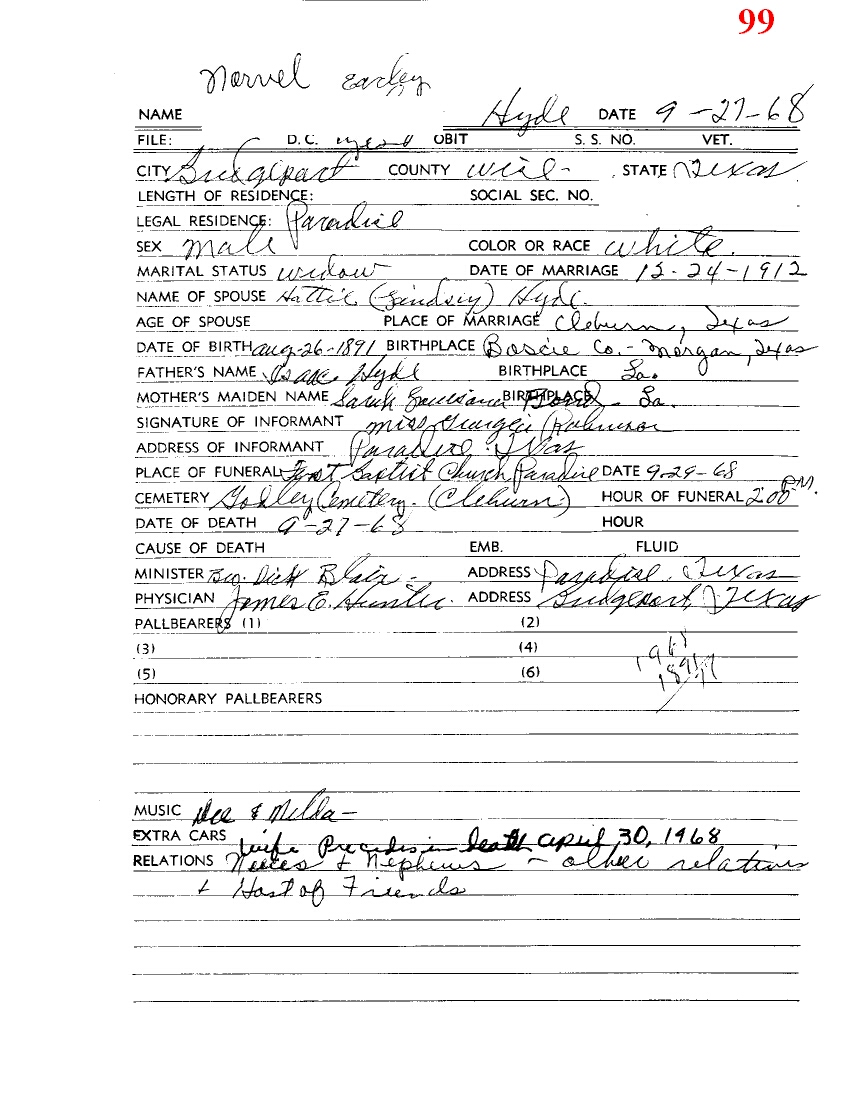 99
Norvel Earley
NAME Hyde DATE 9-27-68
FILE: D.C. OBIT S. S. NO. VET.
CITY Bridgeport COUNTY Wise STATE Texas
LENGTH OF RESIDENCE: SOCIAL SEC. NO.
LEGAL RESIDENCE: Paradise
SEX Male COLOR OR RACE White.
MARITAL STATUS widow DATE OF MARRIAGE 12-24-1912
NAME OF SPOUSE Hattie (Lindsey) Hyde.
AGE OF SPOUSE PLACE OF MARRIAGE Cleburn, Texas
DATE OF BIRTH Aug-26-1891 BIRTHPLACE Boscie Co. - Morgan, Texas
FATHER'S NAME Isaac Hyde BIRTHPLACE La.
MOTHER'S MAIDEN NAME Sarah Louisiana BIRTHPLACE La.
SIGNATURE OF INFORMANT Miss Georgia Robinson
ADDRESS OF INFORMANT Paradise, Texas
PLACE OF FUNERAL First Baptist Church Paradise DATE 9-29-68
CEMETERY Godley Cemetery. (Cleburn) HOUR OF FUNERAL 2:00 P.M.
DATE OF DEATH 9-27-68 HOUR
CAUSE OF DEATH EMB. FLUID
MINISTER Dick Blair - ADDRESS Paradise, Texas
PHYSICIAN James E. Hunter. ADDRESS Bridgeport, Texas
PALLBEARERS (1) (2)
(3) (4) 1968
(5) (6) 1891
HONORARY PALLBEARERS
MUSIC Dee & Melda -
EXTRA CARS wife Precedes in death April 30, 1968
RELATIONS Nieces & Nephews - other relatives
+ Host of Friends